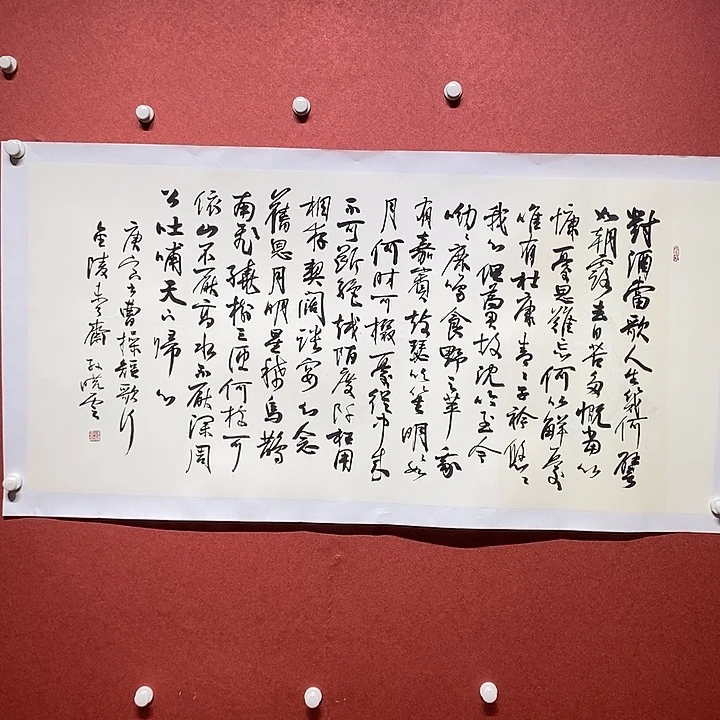 對酒當歌人生幾何譬
如朝露去日苦多慨當以
慷憂思難忘何以解憂
唯有杜康青々子衿悠々
我心但為君故沈吟至今
呦々鹿鳴食野之苹我
有嘉賓鼓瑟吹笙明々如
月何時可掇憂從中來
不可斷絕越陌度阡枉用
相存契闊談宴心念
舊恩月明星稀烏鵲
南飛繞樹三匝何枝可
依山不厭高水不厭深周
公吐哺天下歸心
庚寅書曹操短歌行
金陵齋孫曉雲